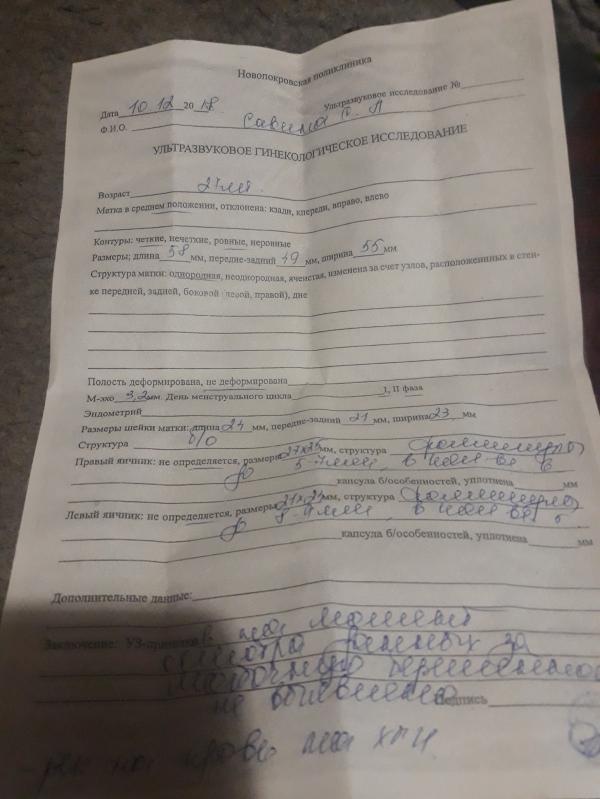 Новопокровская поликлиника
Дата 10.12 2018 Ультразвуковое исследование №
Ф.И.О. Савина
УЛЬТРАЗВУКОВОЕ ГИНЕКОЛОГИЧЕСКОЕ ИССЛЕДОВАНИЕ
Возраст
Матка в среднем положении, отклонена: кзади, кпереди, вправо, влево
Контуры: четкие, нечеткие, ровные, неровные
Размеры; длина 58 мм, передне-задний мм, ширина 55 мм
Структура матки: однородная, неоднородная, ячеистая, изменена за счет узлов, расположенных в стен-
ке передней, задней, боковой (левой, правой), дне
Полость деформирована, не деформирована
М-эхо 3,2 мм. День менструального цикла I, II фаза
Эндометрий
Размеры шейки матки: длина 24 мм, передне-задний 21 мм, ширина 23 мм
Структура б/о
Правый яичник: не определяется, размеры мм, структура
5-7мм, в кол-ве 6
капсула б/особенностей, уплотнена мм
Левый яичник: не определяется, размеры мм, структура
в кол-ве 5
капсула б/особенностей, уплотнена мм
Дополнительные данные:
Заключение: УЗ-признаки на момент
осмотра данных за
маточную беременность
не выявлено Подпись
кровь на ХГЧ